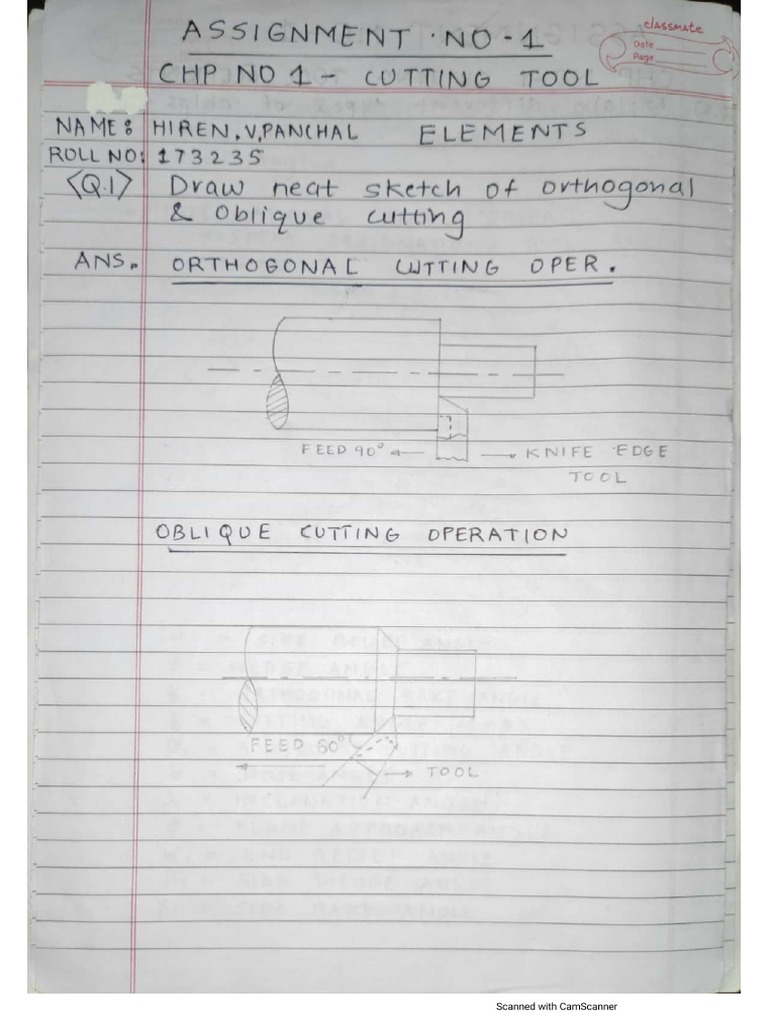 ASSIGNMENT . NO - 1
classmate
Date
Page
CHP NO 1 - CUTTING TOOL
NAME: HIREN.V.PANCHAL ELEMENTS
ROLL NO: 173235
<Q.1> Draw neat sketch of orthogonal
& Oblique cutting
ANS. ORTHOGONAL CUTTING OPER.
FEED 90°
KNIFE EDGE
TOOL
OBLIQUE CUTTING OPERATION
FEED 60°
TOOL
Scanned with CamScanner